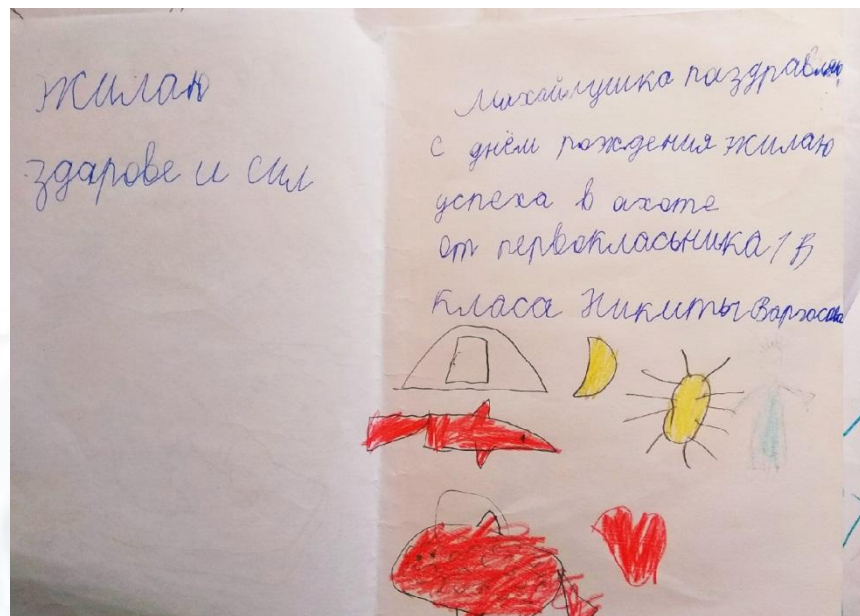 Жилаю
здарове и сил
Махайлушка паздравляю
с днём рождения жилаю
успеха в ахоте
от первокласьника 1 В
класа Никиты